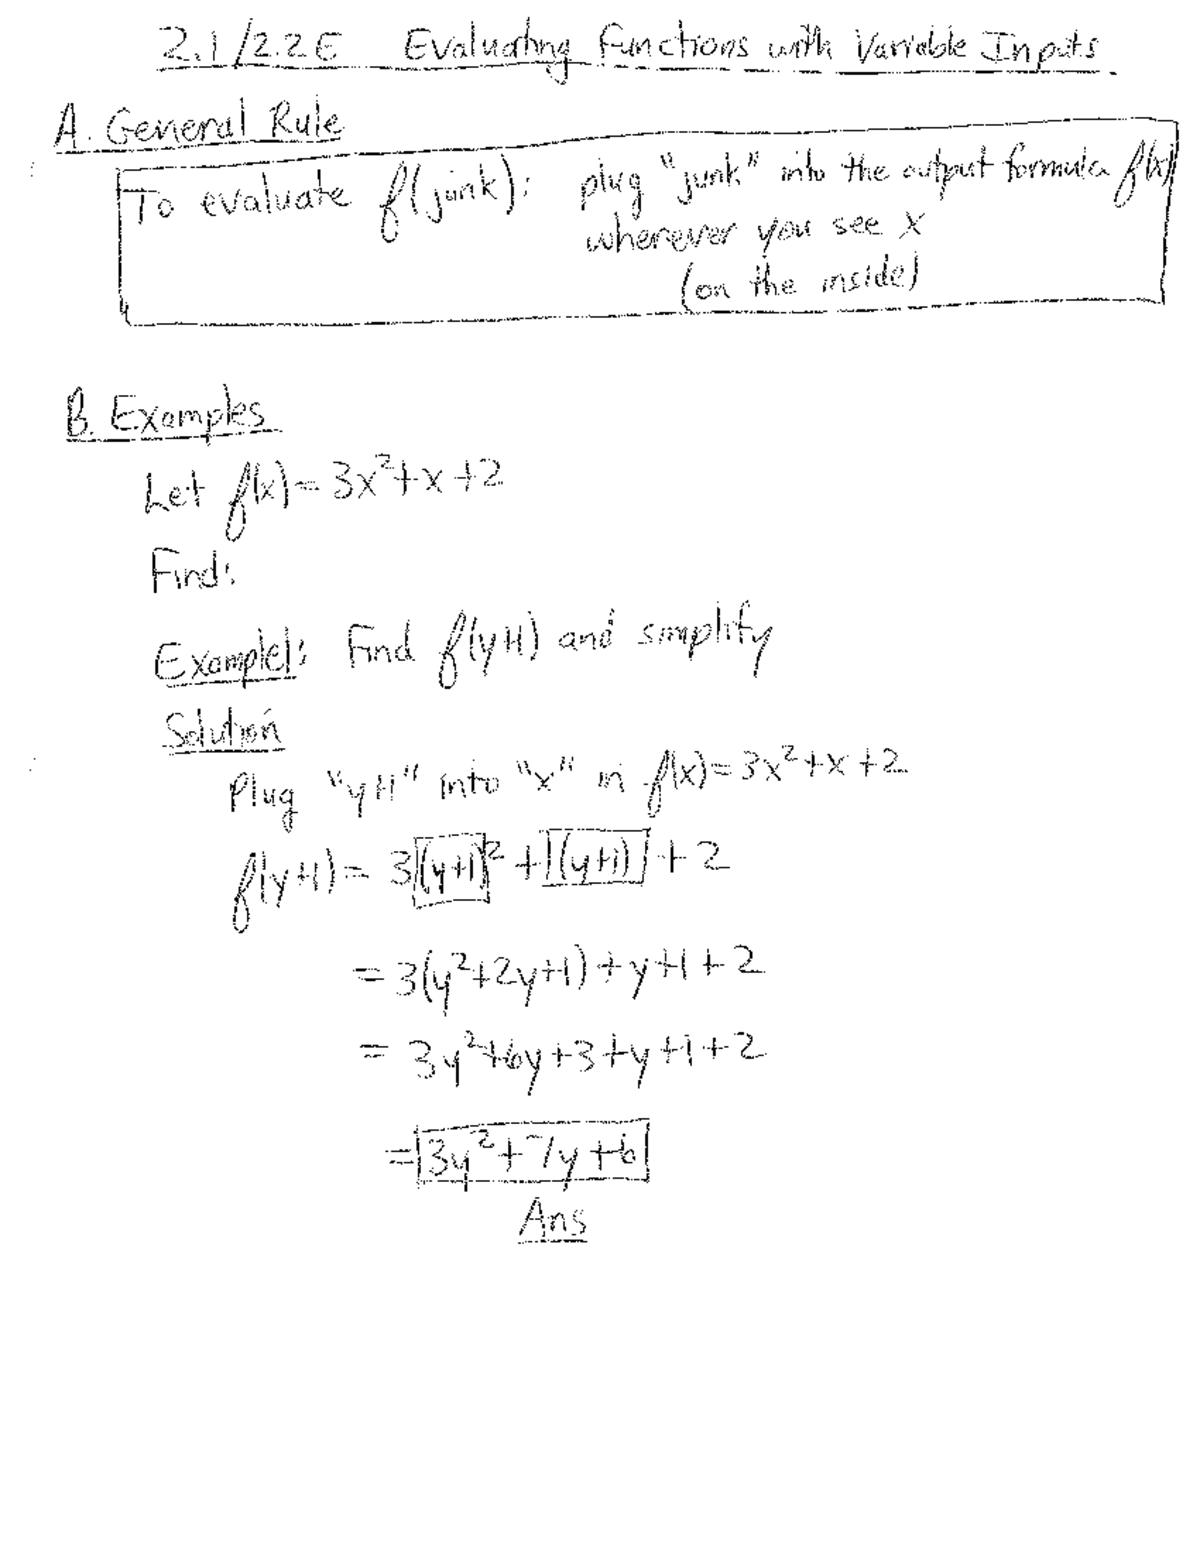 2.1/2.2E Evaluating Functions with Variable Inputs
A. General Rule
To evaluate f(junk): plug "junk" into the output formula f(x)
wherever you see x
(on the inside)
B. Examples
Let f(x) = 3x²+x+2
Find:
Example 1: Find f(y+1) and simplify
Solution
Plug "y+1" into "x" in f(x) = 3x²+x+2
f(y+1) = 3(y+1)² + (y+1) + 2
= 3(y²+2y+1)+y+1+2
= 3y²+6y+3+y+1+2
= 3y²+7y+6
Ans